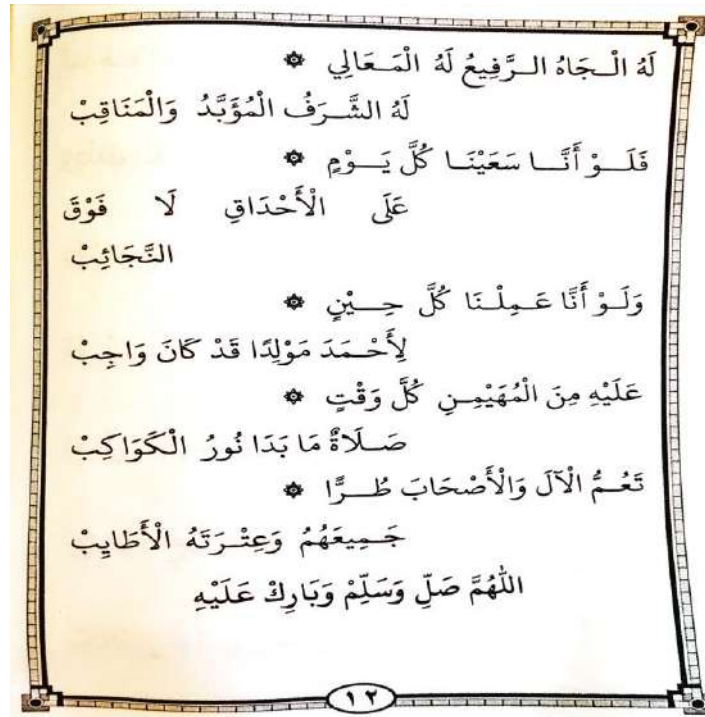 لَهُ الْجَاهُ الرَّفِيعُ لَهُ الْمَعَالِي ۞
لَهُ الشَّرَفُ الْمُؤَبَّدُ وَالْمَنَاقِبْ
فَلَوْ أَنَّا سَعَيْنَا كُلَّ يَوْمٍ ۞
عَلَى الْأَحْدَاقِ لَا فَوْقَ
النَّجَائِبْ
وَلَوْ أَنَّا عَمِلْنَا كُلَّ حِيْنٍ ۞
لِأَحْمَدَ مَوْلِدًا قَدْ كَانَ وَاجِبْ
عَلَيْهِ مِنَ الْمُهَيْمِنِ كُلَّ وَقْتٍ ۞
صَلَاةٌ مَا بَدَا نُورُ الْكَوَاكِبْ
تَعُمُّ الْآلَ وَالْأَصْحَابَ طُرًّا ۞
جَمِيعَهُمُ وَعِتْرَتَهُ الْأَطَايِبْ
اللّٰهُمَّ صَلِّ وَسَلِّمْ وَبَارِكْ عَلَيْهِ
١٢